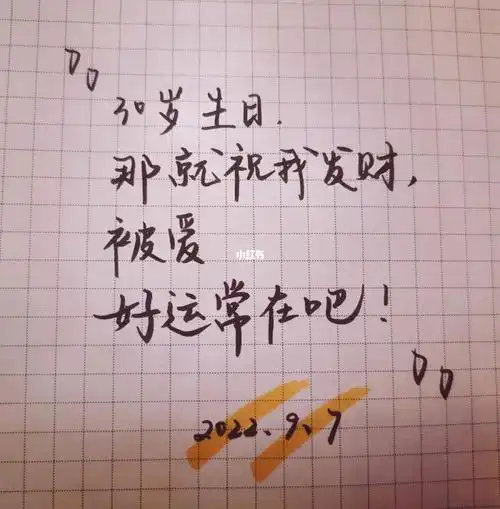 30岁生日.
那就祝我发财,
被爱
小红书
好运常在吧!
2022、9、7